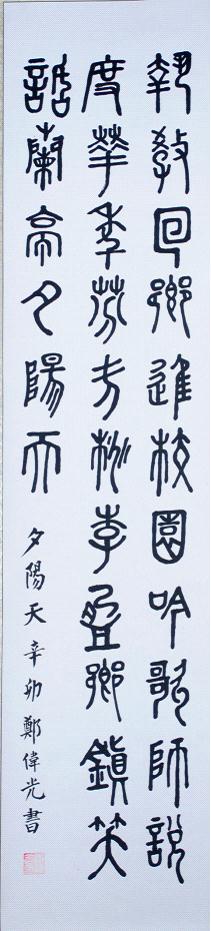 執教回鄉進校園吟歌師說
度華年芬芳桃李盈鄉鎮笑
語蘭亭夕陽天
夕陽天辛卯鄭偉光書